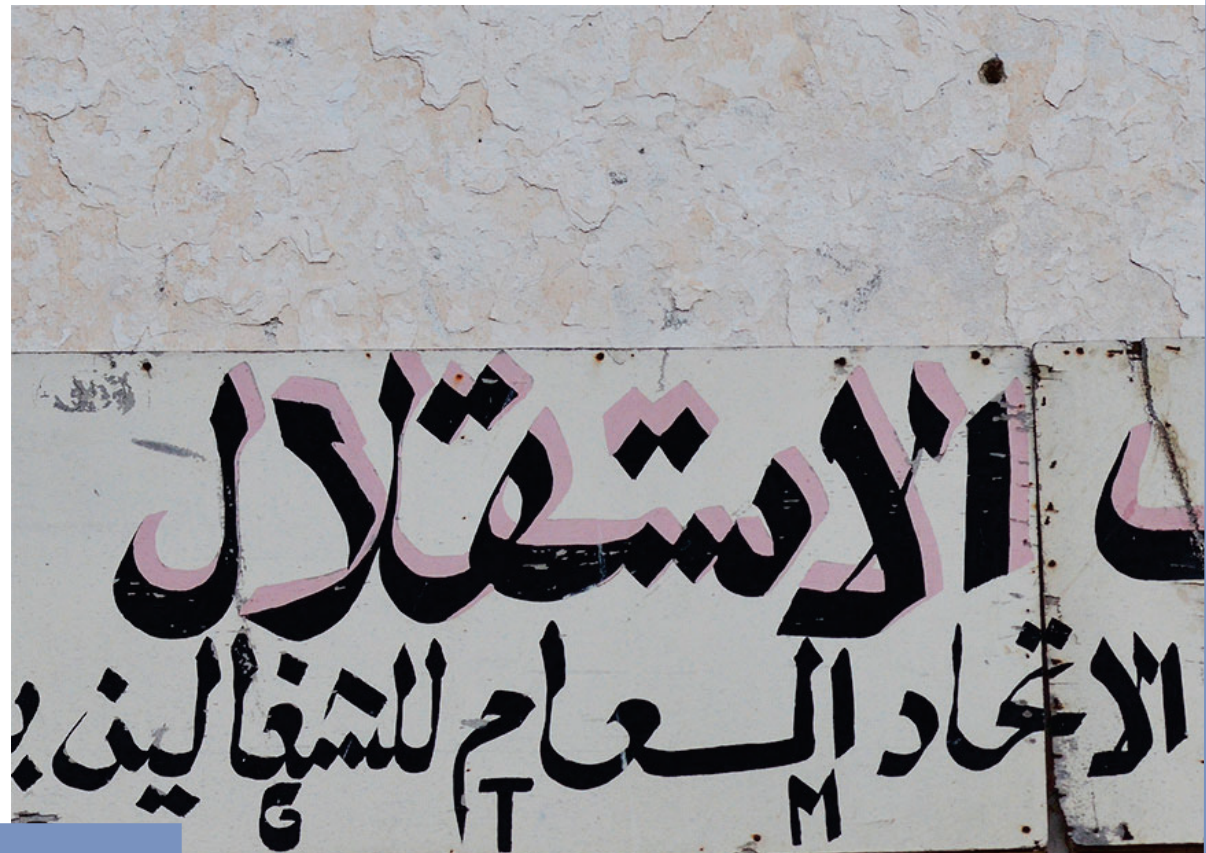 الاستقلال
الاتحاد العام للشغالين
G T M